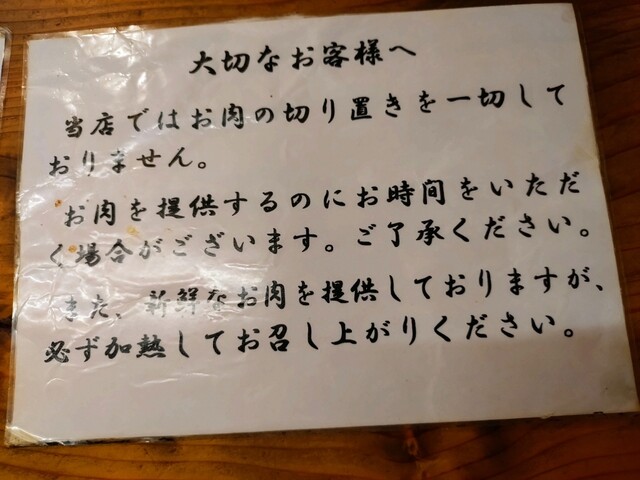 大切なお客様へ
当店ではお肉の切り置きを一切して
おりません。
お肉を提供するのにお時間をいただ
く場合がございます。ご了承ください。
また、新鮮なお肉を提供しておりますが、
必ず加熱してお召し上がりください。